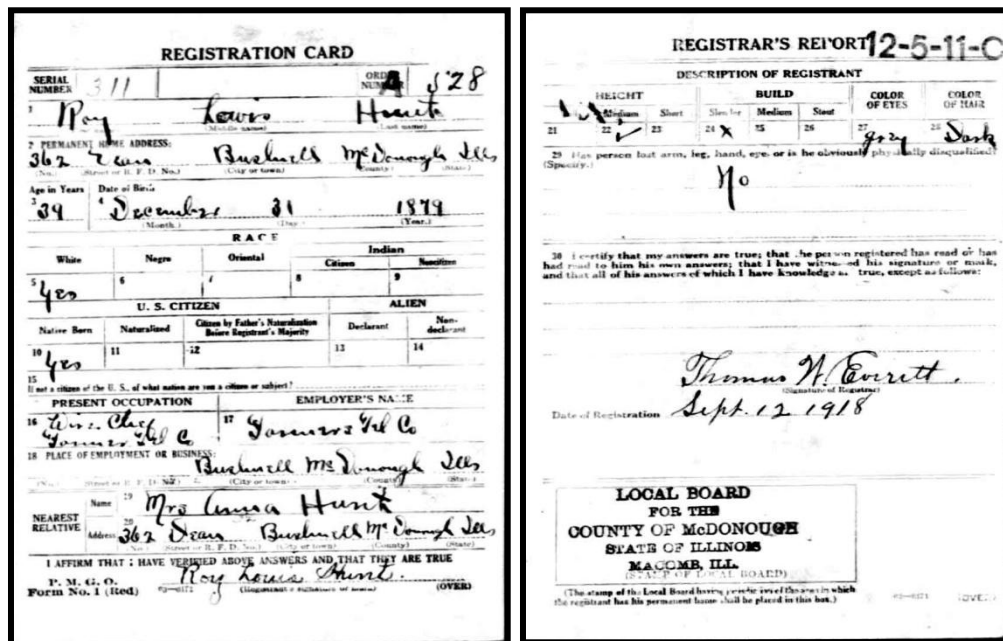 REGISTRATION CARD
SERIAL NUMBER 311 ORDER NUMBER A 528
1 Roy Louis Hunt
(Middle name) (Last name)
2 PERMANENT HOME ADDRESS:
362 Dean Bushnell McDonough Ills
(No.) (Street or R. F. D. No.) (City or town) (County) (State)
Age in Years Date of Birth
3 39 4 December 31 1879
(Month.) (Day.) (Year.)
RACE
White Negro Oriental Indian
Citizen Noncitizen
5 Yes 6 7 8 9
U. S. CITIZEN ALIEN
Native Born Naturalized Citizen by Father's Naturalization Before Registrant's Majority Declarant Non-declarant
10 Yes 11 12 13 14
15
If not a citizen of the U. S., of what nation are you a citizen or subject?
PRESENT OCCUPATION EMPLOYER'S NAME
16 Wire Chief 17 Farmers Tel Co
Farmers Tel Co
18 PLACE OF EMPLOYMENT OR BUSINESS:
Bushnell McDonough Ills
(No.) (Street or R. F. D. No.) (City or town) (County) (State)
NEAREST RELATIVE Name 19 Mrs Anna Hunt
Address 20 362 Dean Bushnell McDonough Ills
(No.) (Street or R. F. D. No.) (City or town) (County) (State)
I AFFIRM THAT I HAVE VERIFIED ABOVE ANSWERS AND THAT THEY ARE TRUE
P. M. G. O.
Form No. 1 (Red) Roy Louis Hunt.
(Registrant's signature or mark) (OVER)
REGISTRAR'S REPORT 12-5-11-C
DESCRIPTION OF REGISTRANT
HEIGHT BUILD COLOR OF EYES COLOR OF HAIR
Medium Short Slender Medium Stout
21 22 ✓ 23 24 x 25 26 27 gray 28 Dark
29 Has person lost arm, leg, hand, eye, or is he obviously physically disqualified?
(Specify.)
No
30 I certify that my answers are true; that the person registered has read or has
had read to him his own answers; that I have witnessed his signature or mark,
and that all of his answers of which I have knowledge are true, except as follows:
Thomas W. Everett.
(Signature of Registrar)
Date of Registration Sept. 12 1918
LOCAL BOARD
FOR THE
COUNTY OF McDONOUGH
STATE OF ILLINOIS
MACOMB, ILL.
(STAMP OF LOCAL BOARD)
(The stamp of the Local Board having jurisdiction of the area in which
the registrant has his permanent home shall be placed in this box.)
(OVER)